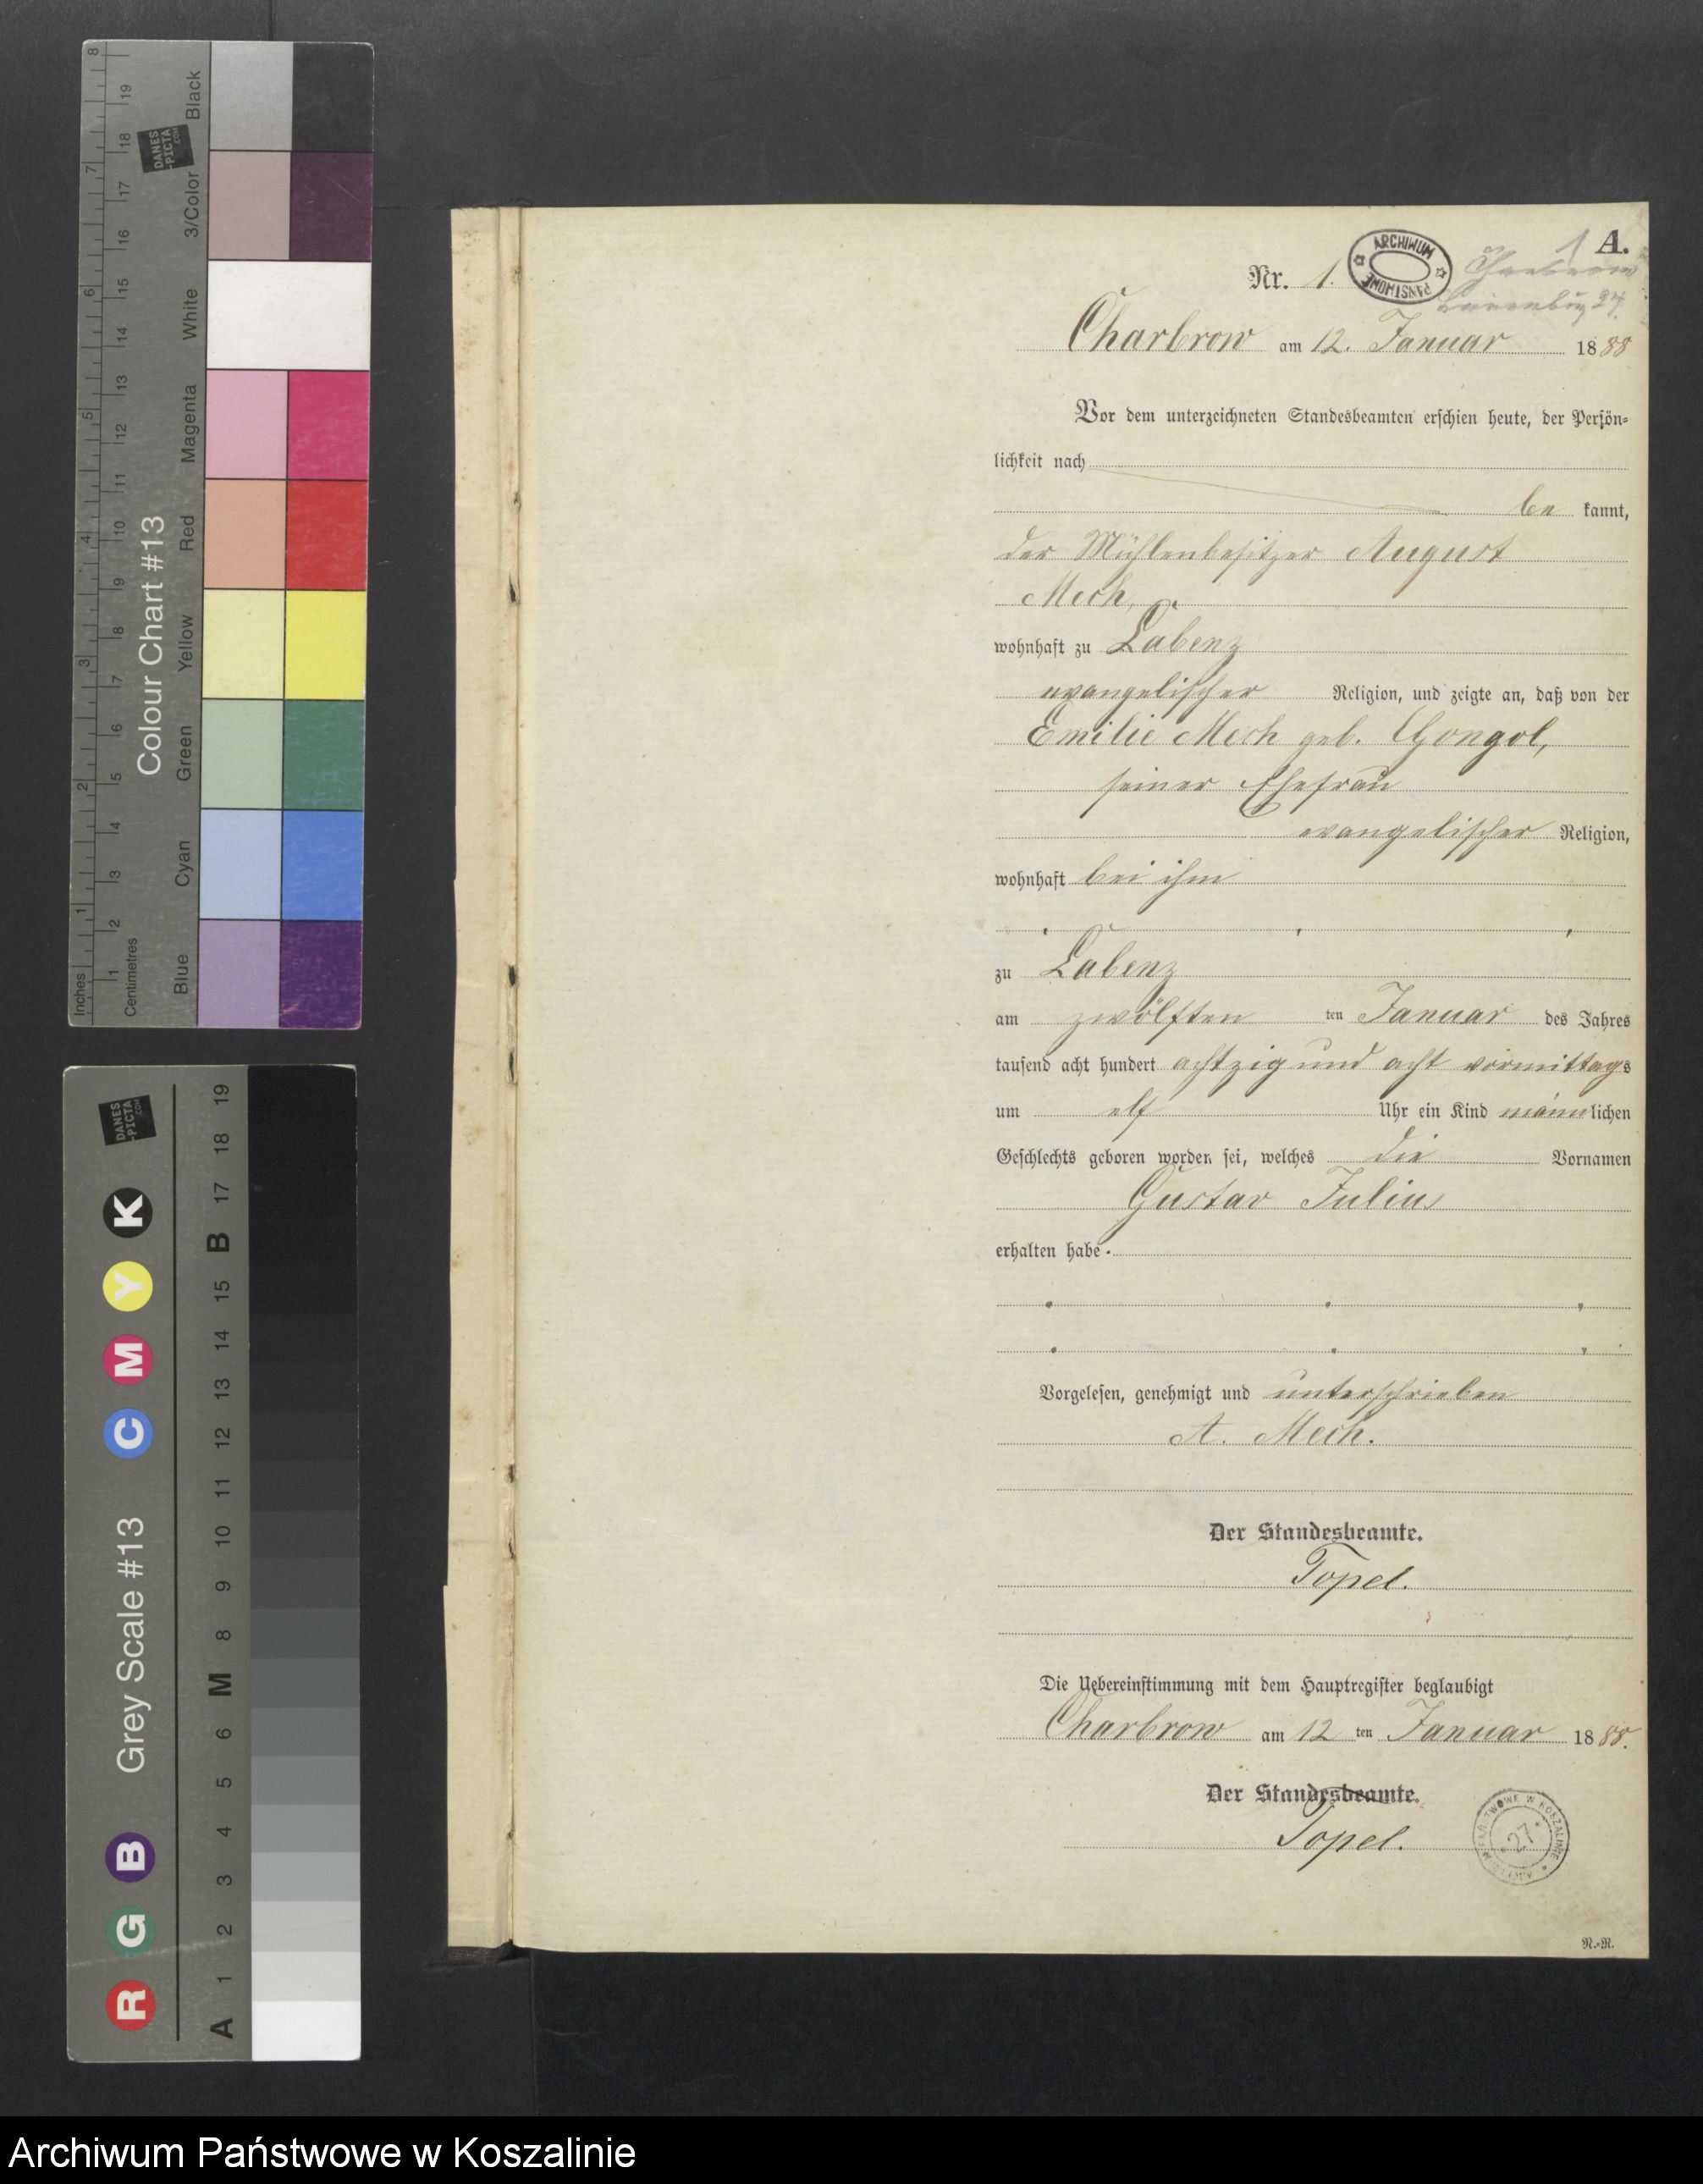 8
19
18
7
17
16
6
15
14
13
5
12
11
10
4
9
8
3
7
6
2
5
4
3
1
2
1
Inches
Centimetres
Colour Chart #13
DANES
-PICTA
.COM
Black
3/Color
White
Magenta
Red
Yellow
Green
Cyan
Blue
DANES
-PICTA
.COM
Grey Scale #13
R G B C M Y K
A 1 2 3 4 5 6 M 8 9 10 11 12 13 14 15 B 17 18 19
1 A.
Nr. 1.
ARCHIWUM PAŃSTWOWE
Charbrow
Lauenburg 27.
Charbrow am 12. Januar 1888
Vor dem unterzeichneten Standesbeamten erschien heute, der Persön-
lichkeit nach
be kannt,
der Mühlenbesitzer August
Mech,
wohnhaft zu Labenz
evangelischer Religion, und zeigte an, daß von der
Emilie Mech geb. Gongol,
seiner Ehefrau
evangelischer Religion,
wohnhaft bei ihm
zu Labenz
am zwölften ten Januar des Jahres
tausend acht hundert achtzig und acht vormittags
um elf Uhr ein Kind männlichen
Geschlechts geboren worden sei, welches die Vornamen
Gustav Julius
erhalten habe.
Vorgelesen, genehmigt und unterschrieben
A. Mech.
Der Standesbeamte.
Topel.
Die Uebereinstimmung mit dem Hauptregister beglaubigt
Charbrow am 12 ten Januar 1888.
Der Standesbeamte.
Topel.
PAŃSTWOWE W KOSZALINIE
27
N.-R.
Archiwum Państwowe w Koszalinie